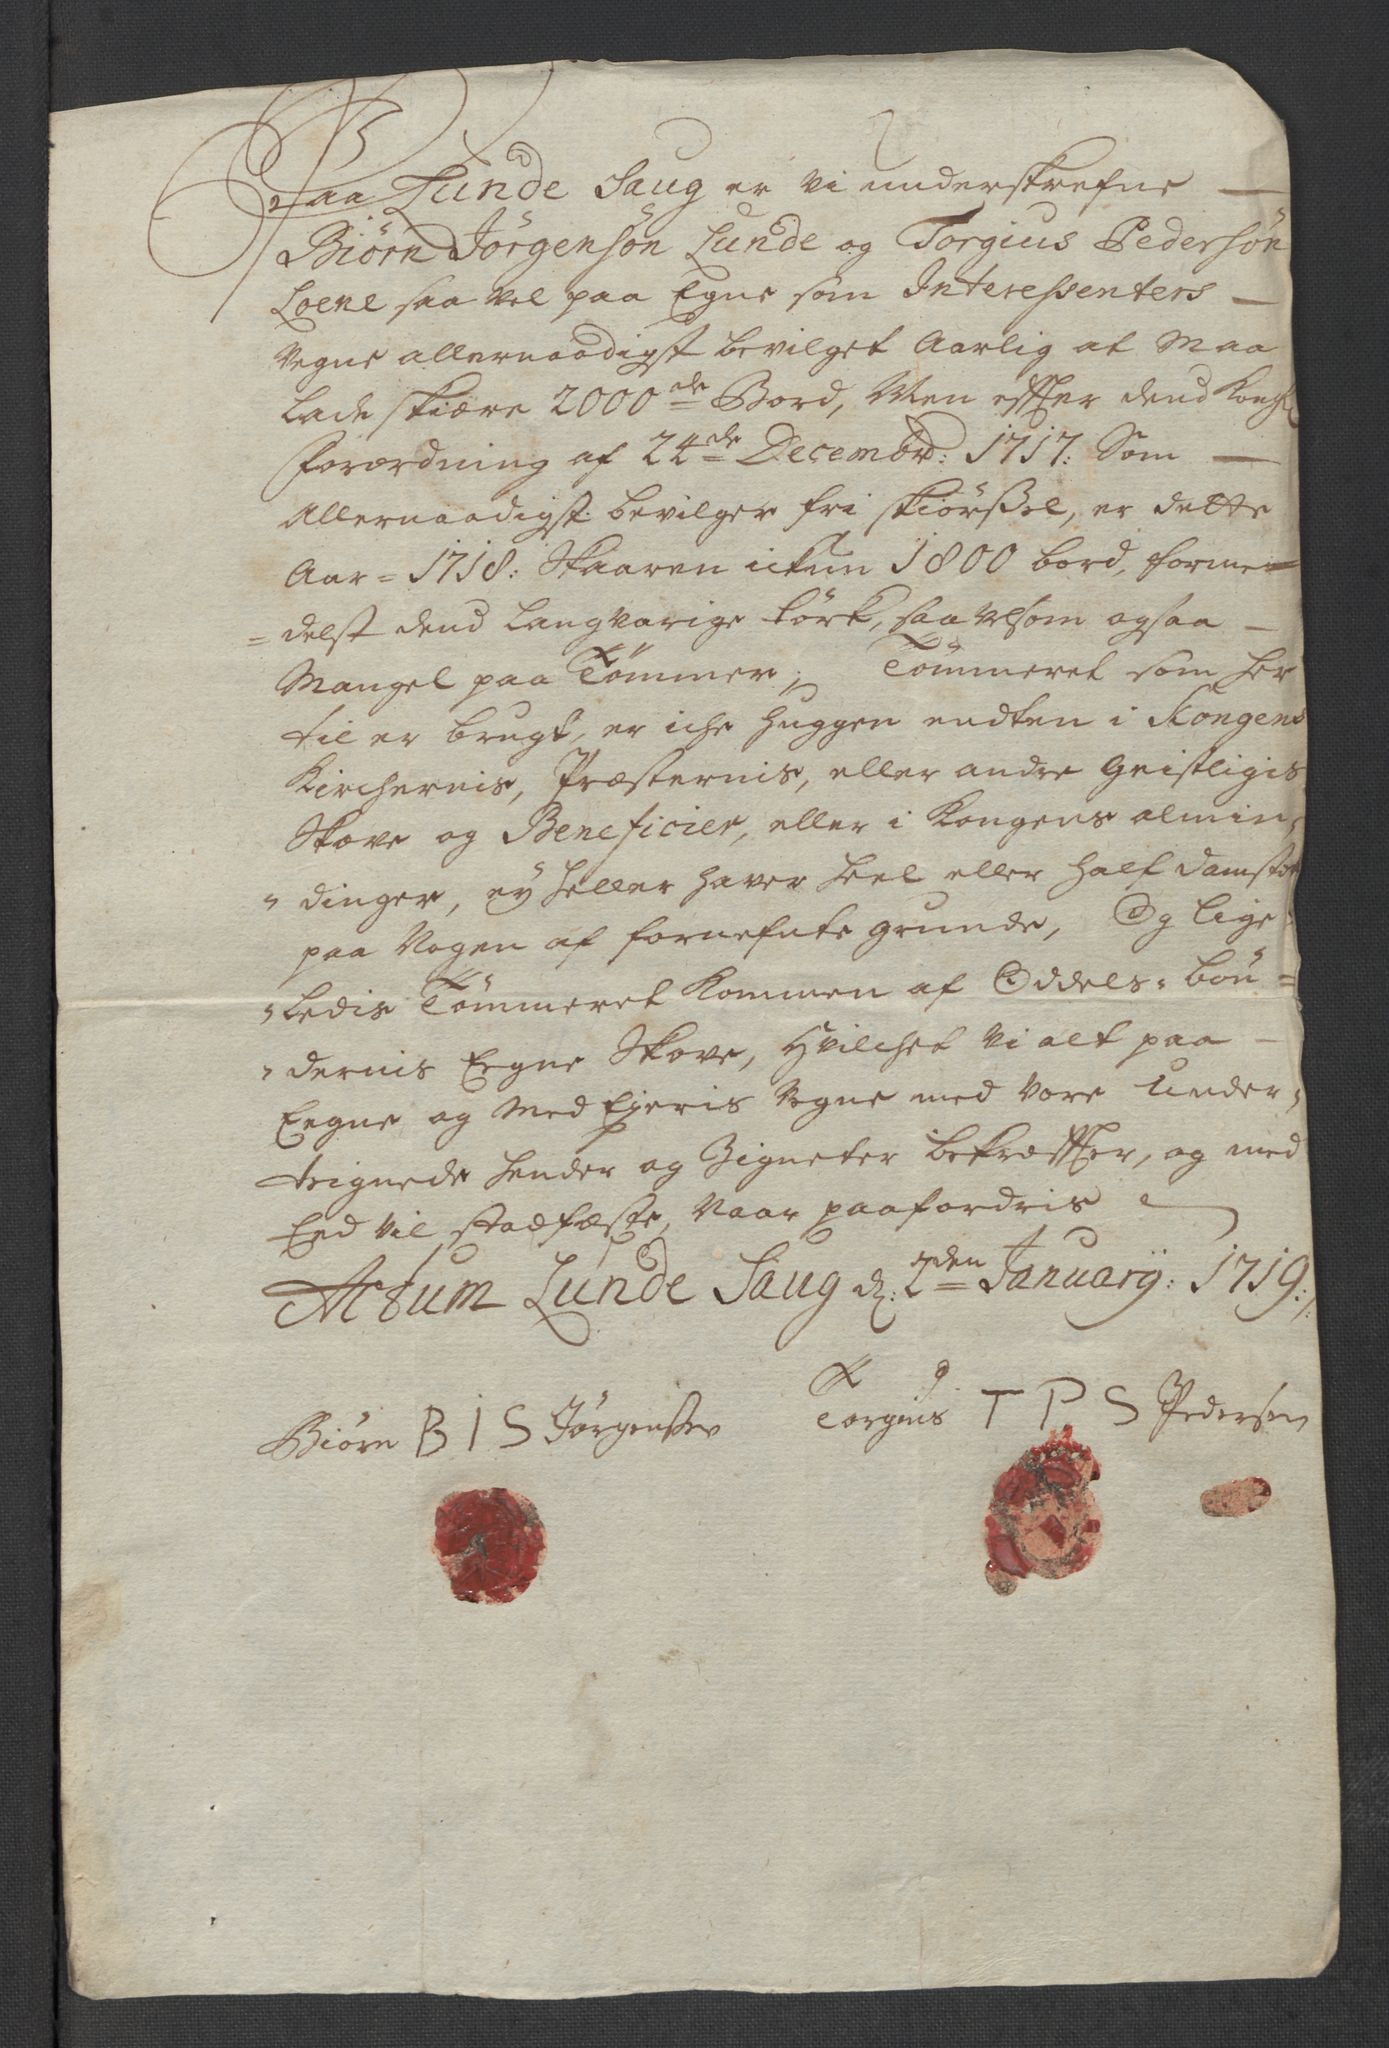 Paa Lunde Saug er Vi underskrefne
Biörn Jörgensön Lunde og Torgius Pedersön
Loene saa vel paa Egne som Interessenters
Vegne allernaadigst bevilget Aarlig at Maa
Lade skiære 2000de Bord, Men effter dend Kongl
forordning af 24de Decembr: 1717: Som
Allernaadigst bevilger fri skiörssel, er dette
Aar = 1718: Skaaren ickun 1800 bord, forme
= delst dend langvarige törk, saa velsom ogsaa
Mangel paa Tömmer; Tömmeret som her
til er brugt, er iche huggen endten i Kongens
Kirchernis, Præsternis, eller andre Geistligis
Skove og Beneficier, eller i Kongens almin,
, dinger, eÿ heller haver heel eller half damstde
paa Nogen af fornefnte grunde, Og lige,
, Ledis Tömmeret Kommen af Oddels, bön =
, dernis Eegne Skove, Hvilchet Vi alt paa
Eegne og Medejeris Vegne med Vore Under,
teignede Hender og Zigneter bekræffter, og med
Eed vil stadfæste, Naar paafordris
Actum Lunde Saug d: 2den Januarÿ: 1719:/:
Biörn B I S Jörgensen Torgius T P S Pedersen